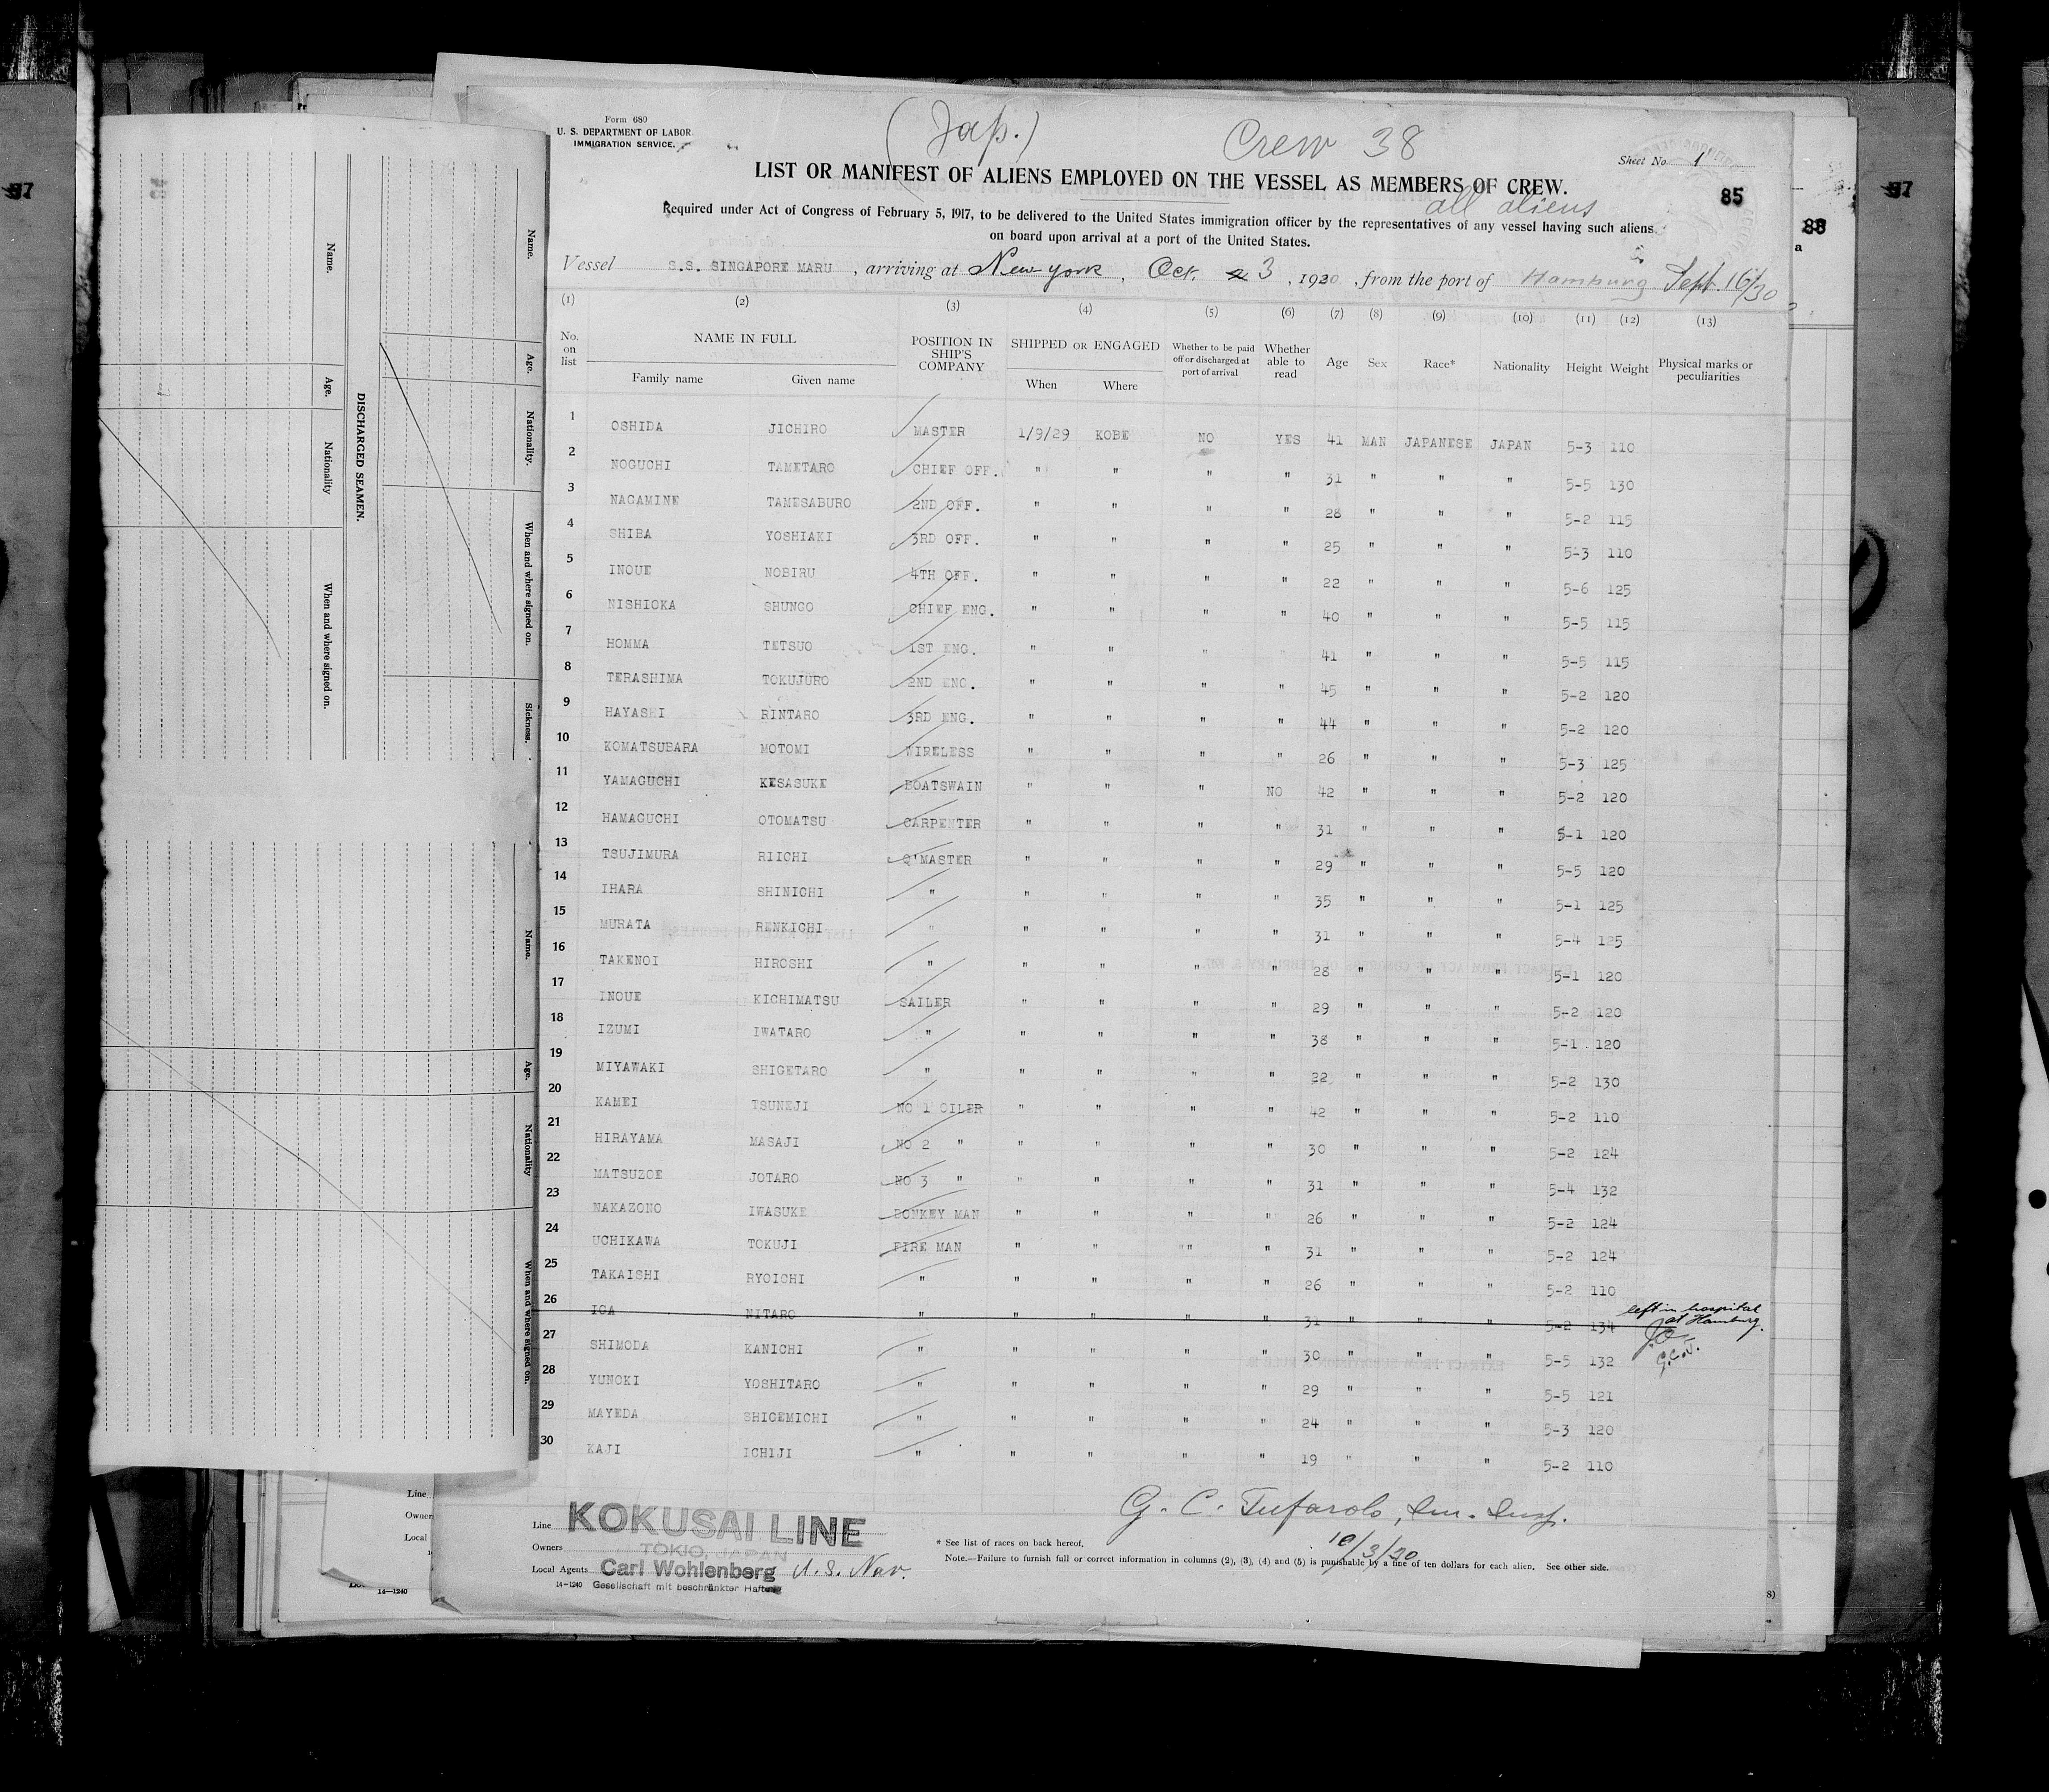 Form 680
U. S. DEPARTMENT OF LABOR
IMMIGRATION SERVICE.
(Jap.)
Crew 38
Sheet No. 1
LIST OR MANIFEST OF ALIENS EMPLOYED ON THE VESSEL AS MEMBERS OF CREW.
85
all aliens
Required under Act of Congress of February 5, 1917, to be delivered to the United States immigration officer by the representatives of any vessel having such aliens
on board upon arrival at a port of the United States.
88
a
97
97
Vessel S.S. SINGAPORE MARU, arriving at New york, Oct. 3, 1920, from the port of Hamburg Sept. 16/30
(1) (2) (3) (4) (5) (6) (7) (8) (9) (10) (11) (12) (13)
No. on list NAME IN FULL POSITION IN SHIP'S COMPANY SHIPPED OR ENGAGED Whether to be paid off or discharged at port of arrival Whether able to read Age Sex Race* Nationality Height Weight Physical marks or peculiarities
Family name Given name When Where
1 OSHIDA JICHIRO MASTER 1/9/29 KOBE NO YES 41 MAN JAPANESE JAPAN 5-3 110
2 NOGUCHI TAMETARO CHIEF OFF. " " " " 31 " " " 5-5 130
3 NAGAMINE TAMESABURO 2ND OFF. " " " " 28 " " " 5-2 115
4 SHIBA YOSHIAKI 3RD OFF. " " " " 25 " " " 5-3 110
5 INOUE NOBIRU 4TH OFF. " " " " 22 " " " 5-6 125
6 NISHIOKA SHUNGO CHIEF ENG. " " " " 40 " " " 5-5 115
7 HOMMA TETSUO 1ST ENG. " " " " 41 " " " 5-5 115
8 TERASHIMA TOKUJURO 2ND ENG. " " " " 45 " " " 5-2 120
9 HAYASHI RINTARO 3RD ENG. " " " " 44 " " " 5-2 120
10 KOMATSUBARA MOTOMI WIRELESS " " " " 26 " " " 5-3 125
11 YAMAGUCHI KESASUKE BOATSWAIN " " " NO 42 " " " 5-2 120
12 HAMAGUCHI OTOMATSU CARPENTER " " " " 31 " " " 5-1 120
13 TSUJIMURA RIICHI Q'MASTER " " " " 29 " " " 5-5 120
14 IHARA SHINICHI " " " " " 35 " " " 5-1 125
15 MURATA RENKICHI " " " " " 31 " " " 5-4 125
16 TAKENOI HIROSHI " " " " " 28 " " " 5-1 120
17 INOUE KICHIMATSU SAILER " " " " 29 " " " 5-2 120
18 IZUMI IWATARO " " " " " 38 " " " 5-1 120
19 MIYAWAKI SHIGETARO " " " " " 22 " " " 5-2 130
20 KAMEI TSUNEJI NO 1 OILER " " " " 42 " " " 5-2 110
21 HIRAYAMA MASAJI NO 2 " " " " " 30 " " " 5-2 124
22 MATSUZOE JOTARO NO 3 " " " " " 31 " " " 5-4 132
23 NAKAZONO IWASUKE DONKEY MAN " " " " 26 " " " 5-2 124
24 UCHIKAWA TOKUJI FIRE MAN " " "" " 31 " " " 5-2 124
25 TAKAISHI RYOICHI " " " " " 26 " " " 5-2 110
26 IGA NITARO " " " " " 31 " " " 5-2 134 left in hospital
at Hamburg.
G.C.T.
27 SHIMODA KANICHI " " " " " 30 " " " 5-5 132
28 YUNOKI YOSHITARO " " " " " 29 " " " 5-5 121
29 MAYEDA SHIGEMICHI " " " " " 24 " " " 5-3 120
30 KAJI ICHIJI " " " " " 19 " " " 5-2 110
G. C. Tufarolo, Im. Insp.
10/3/30
Line KOKUSAI LINE
Owners TOKIO, JAPAN
Local Agents Carl Wohlenberg U. S. Nav.
14-1240 Gesellschaft mit beschränkter Haftung
* See list of races on back hereof.
Note.—Failure to furnish full or correct information in columns (2), (3), (4) and (5) is punishable by a fine of ten dollars for each alien. See other side.
Name. Age. Nationality When and where signed on.
DISCHARGED SEAMEN.
Name. Age. Nationality. When and where signed on. Sickness.
Name. Age. Nationality When and where signed on.
Line
Owners
Local
14—1240